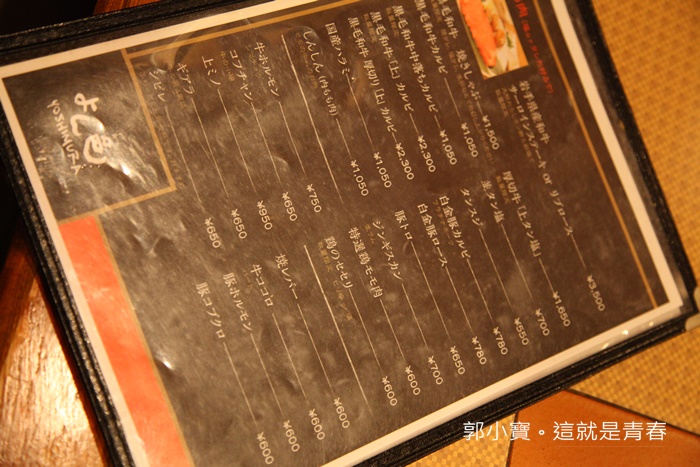 岩手県産和牛
サーロインステーキ or リブロース ¥3,600
黒毛和牛 焼きしゃぶ ¥1,500
黒毛和牛カルビ ¥1,050
黒毛和牛中落ちカルビ ¥1,050
黒毛和牛「上」カルビ ¥2,300
黒毛和牛 厚切り「上」カルビ ¥2,300
国産ハラミ ¥1,050
しんしん(内もも肉) ¥1,050
牛ホルモン ¥750
コプチャン ¥650
上ミノ ¥950
ギアラ ¥650
シビレ ¥650
厚切「上タン塩」 ¥1,850
並タン塩 ¥700
タンスジ ¥550
白金豚カルビ ¥780
白金豚ロース ¥780
豚トロ ¥650
ジンギスカン ¥700
特選鶏モモ肉 ¥600
鶏のセセリ ¥600
焼レバー ¥600
牛ココロ ¥600
豚ホルモン ¥600
豚コブクロ ¥600
YOSHIMUアード
郭小寶。這就是青春